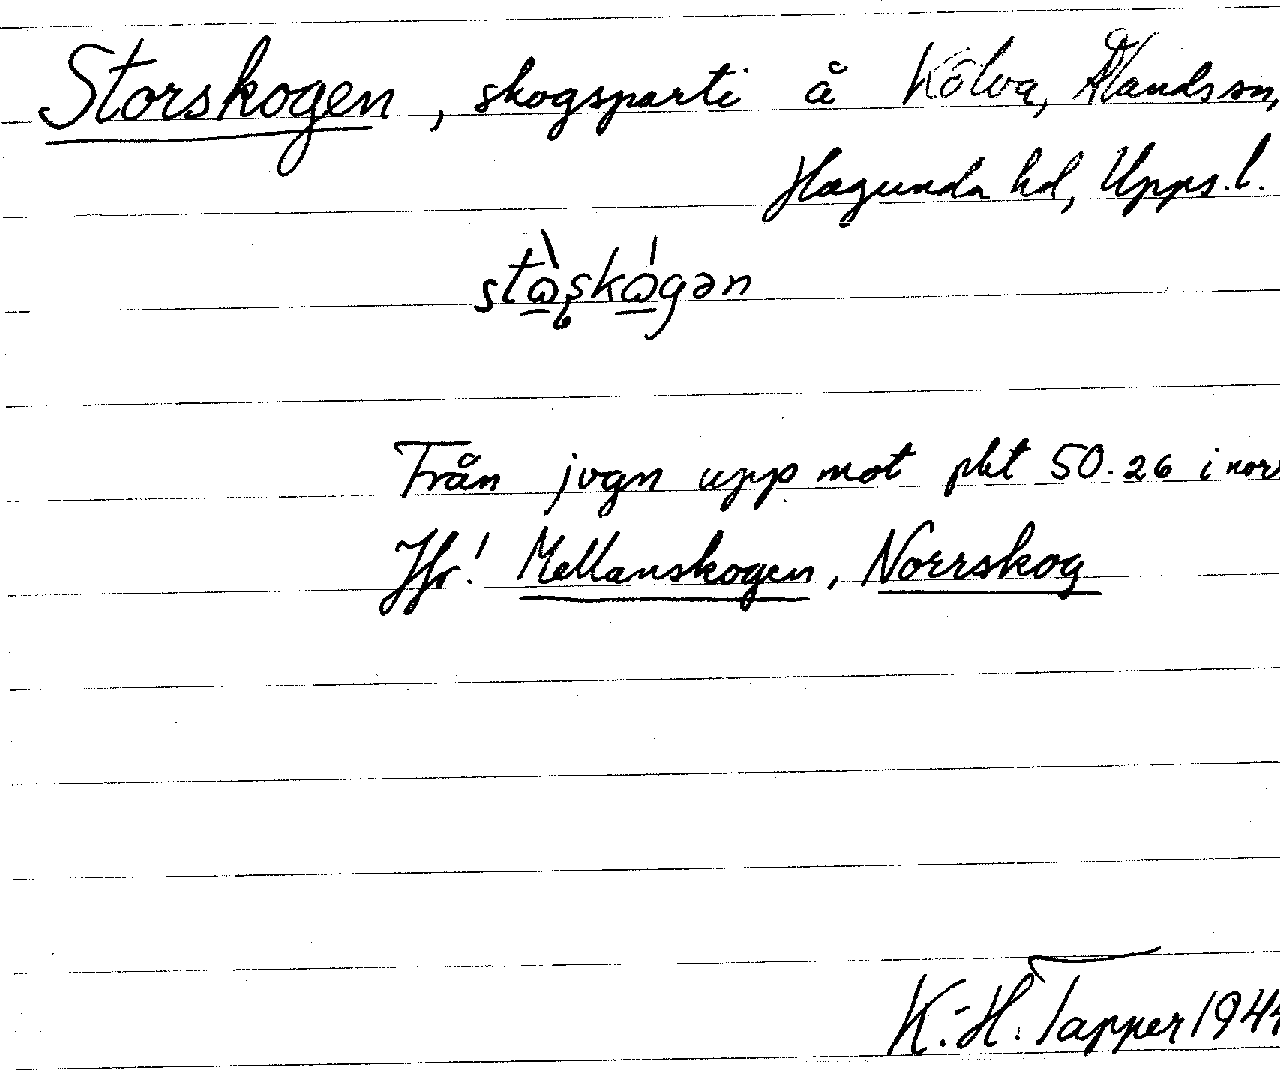 Storskogen, skogsparti å Kölva, Ålandssn,
Hagunda hd, Upps.l.
Från jvgn upp mot pkt 50.26 i norr
Jfr! Mellanskogen, Norrskog
K.-H. Tapper 1944